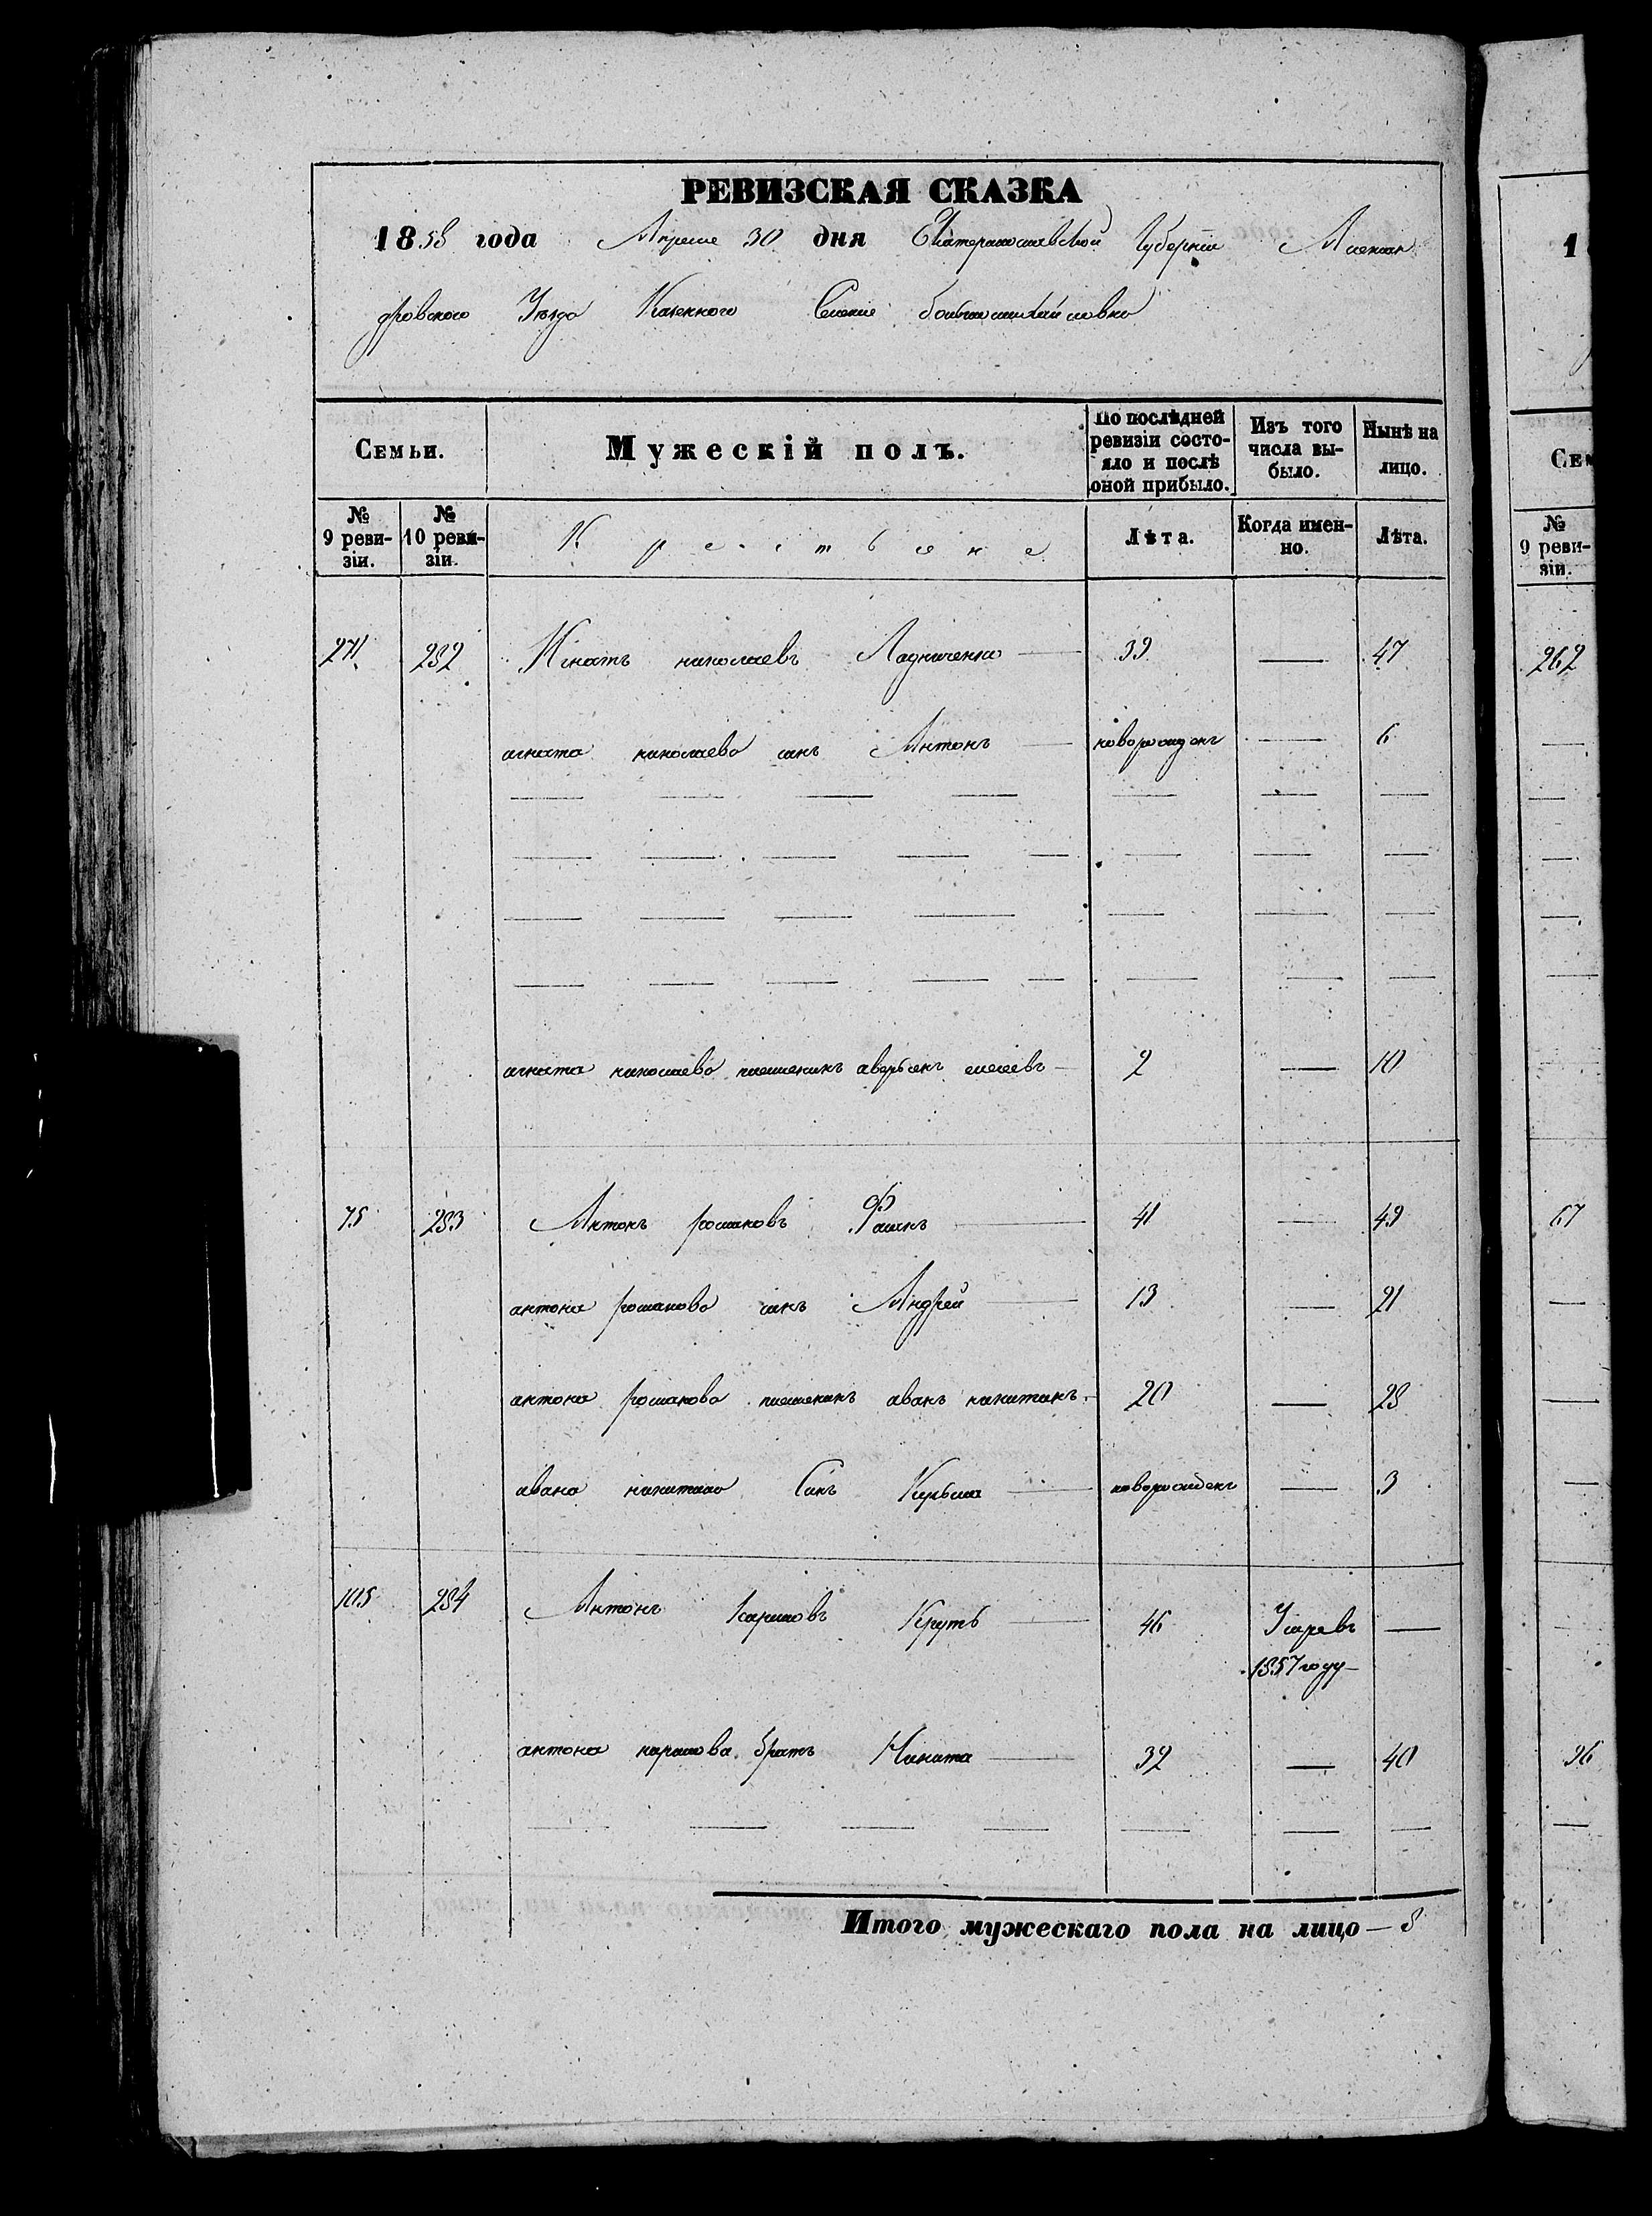 РЕВИЗСКАЯ СКАЗКА
1858 года Апреля 30 дня Екатеринославской Губернии Александ
дровского Уезда Казенного Селение
Семьи. Мужескій полъ. По послѣдней ревизіи состояло и послѣ оной прибыло. Изъ того числа выбыло. Нынѣ на лицо.
№ 9 ревизіи. № 10 ревизіи. Крестьяне Лѣта. Когда именно. Лѣта.
271 282 николаевъ Ладниченко 39 — 47
игната николаева синъ Антонъ новорожденъ — 6
игната николаева племеникъ 2 — 10
75 283 Антонъ романовъ 41 — 49
антона романова синъ Андрей 13 — 21
антона романова племеникъ иванъ никитинъ 20 — 28
ивана никитина Синъ новорожденъ — 3
105 284 Антонъ Карповъ Круть 46 Умревъ —
1857 году
антона карпова братъ Никита 32 — 40
Итого мужескаго пола на лицо — 8
1
Сем
№ 9 ревизіи.
262
67
96